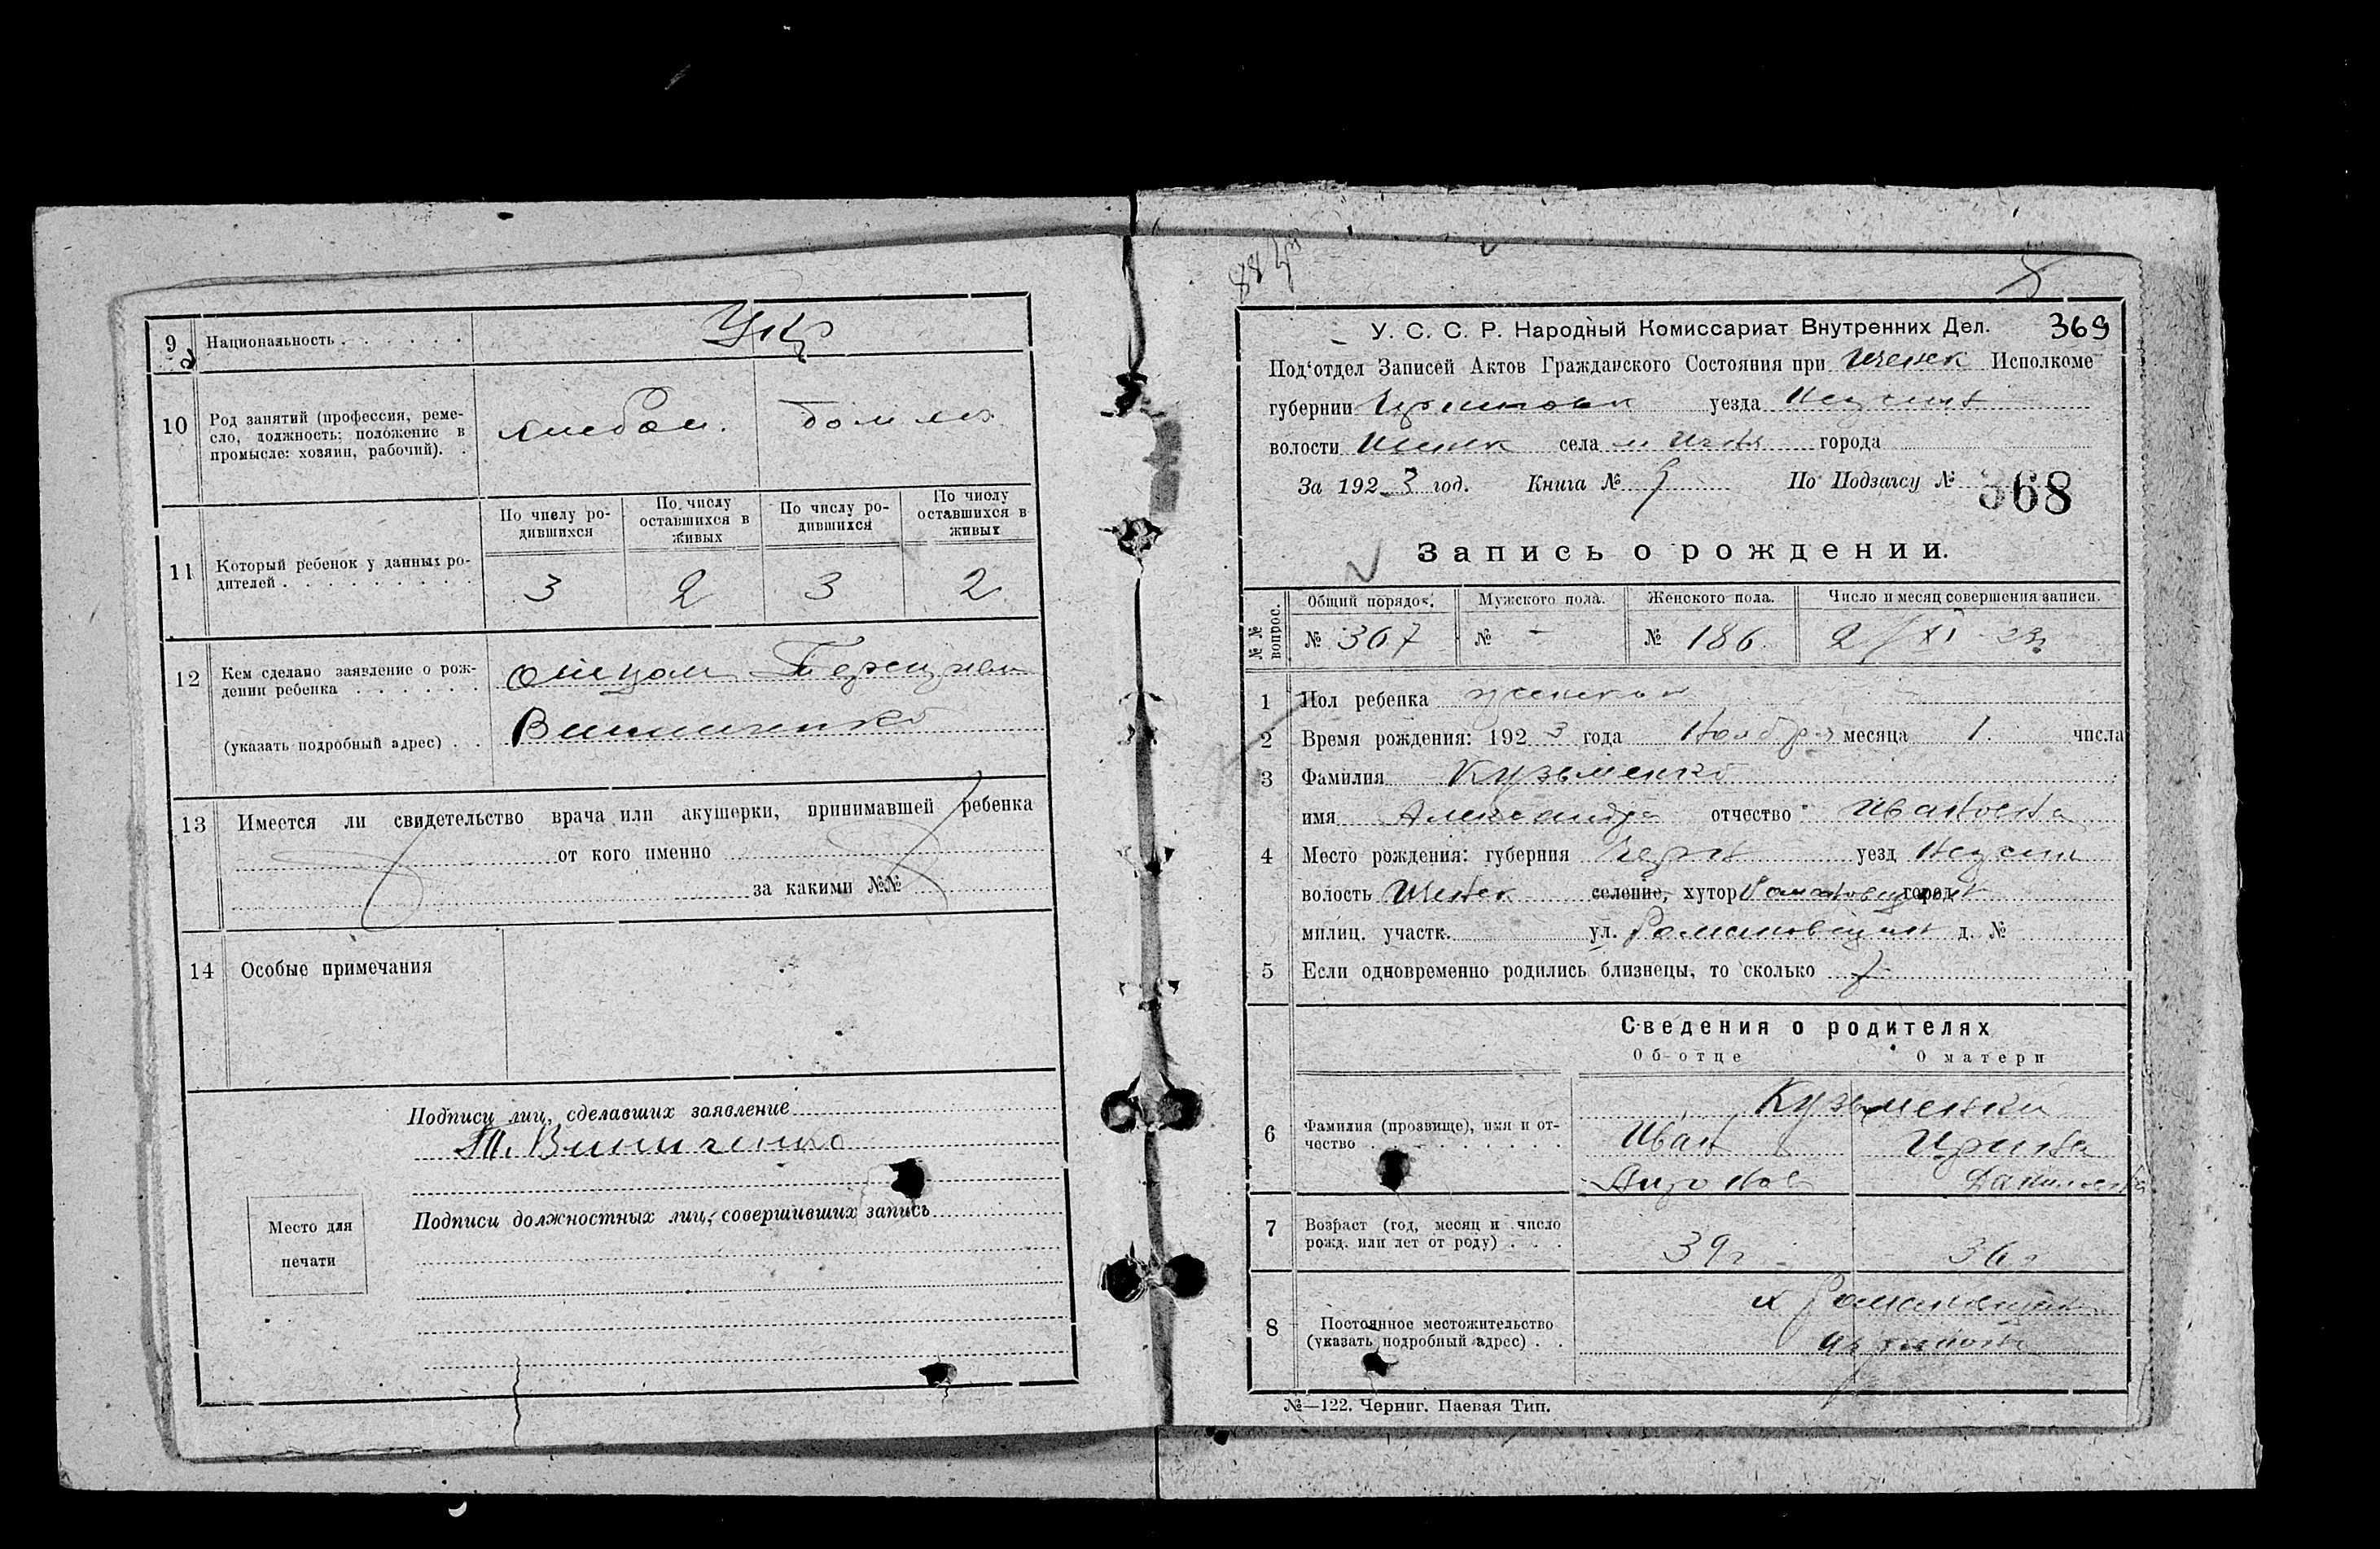 9 Национальность . . . . . . Укр
10 Род занятий (профессия, реме-
сло, должность: положение в
промысле: хозяин, рабочий). .
хлебоп. дом хоз
По числу ро-
дившихся
По числу
оставшихся в
живых
По числу ро-
дившихся
По числу
оставшихся в
живых
11 Который ребенок у данных ро-
дителей . . . . . . . . .
3 2 3 2
12 Кем сделано заявление о рож-
дении ребенка . . . . . .
отцом
Винниченко
(указать подробный адрес) . .
13 Имеется ли свидетельство врача или акушерки, принимавшей ребенка
от кого именно
за какими №№
14 Особые примечания
Подписи лиц, сделавших заявление
Т. Винниченко
Подписи должностных лиц, совершивших запись
Место для
печати
У. С. С. Р. Народный Комиссариат Внутренних Дел. 369
Под‘отдел Записей Актов Гражданского Состояния при Иченск Исполкоме
губернии Черниговск уезда Нежинск
волости Иченск села м Ичня города
За 1923 год. Книга № По Подзагсу № 368
Запись о рождении.
№ № вопрос. Общий порядок. Мужского пола. Женского пола. Число и месяц совершения записи.
№ 367 № - № 186 2/XI 23
1 Пол ребенка женский
2 Время рождения: 1923 года Ноября месяца 1. числа
3 Фамилия Кузьменко
имя Александра отчество Ивановна
4 Место рождения: губерния Черн уезд Нежин
волость Иченск селение, хутор город
милиц. участк. ул. д. №
5 Если одновременно родились близнецы, то сколько
Сведения о родителях
Об отце О матери
6 Фамилия (прозвище), имя и от-
чество . . . . . . . . . .
Кузьменки
Иван Ирина
Даниловна
7 Возраст (год, месяц и число
рожд. или лет от роду) . . .
39 г 36 г
8 Постоянное местожительство
(указать подробный адрес) . .
№—122. Черниг. Паевая Тип.